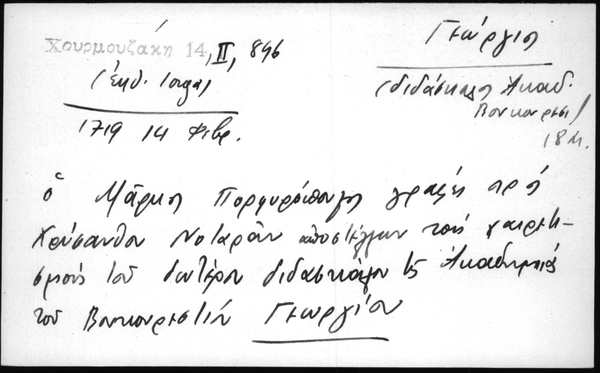 Χουρμουζάκη 14, II, 896
(ἐκδ. Ιοργα)
1719 14 Φεβρ.
Γεώργιος
(διδάσκαλος Ἀκαδ.
Βουκουρεστ)
18 αι.
ὁ Μᾶρκος Πορφυρόπουλος γράφει πρός
Χρύσανθον Νοταρᾶν τούς χαιρετι-
σμούς τοῦ δευτέρου διδασκάλου τῆς Ἀκαδημίας
τοῦ Βουκουρεστίου Γεωργίου